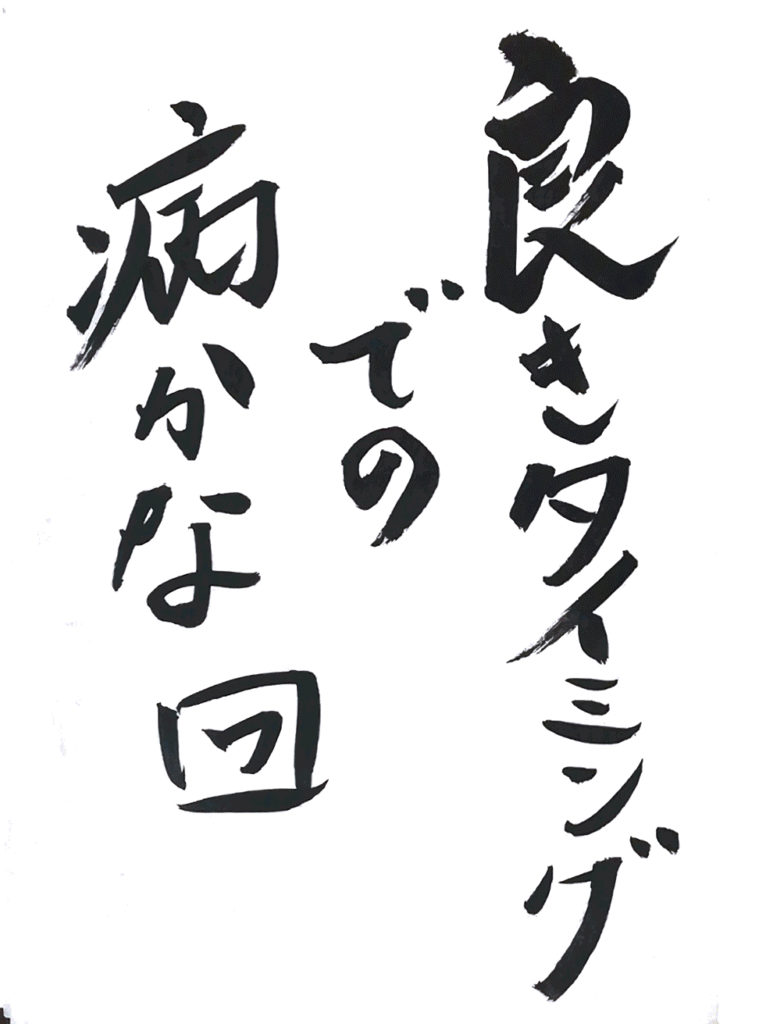 良きタイミング
での
病かな回